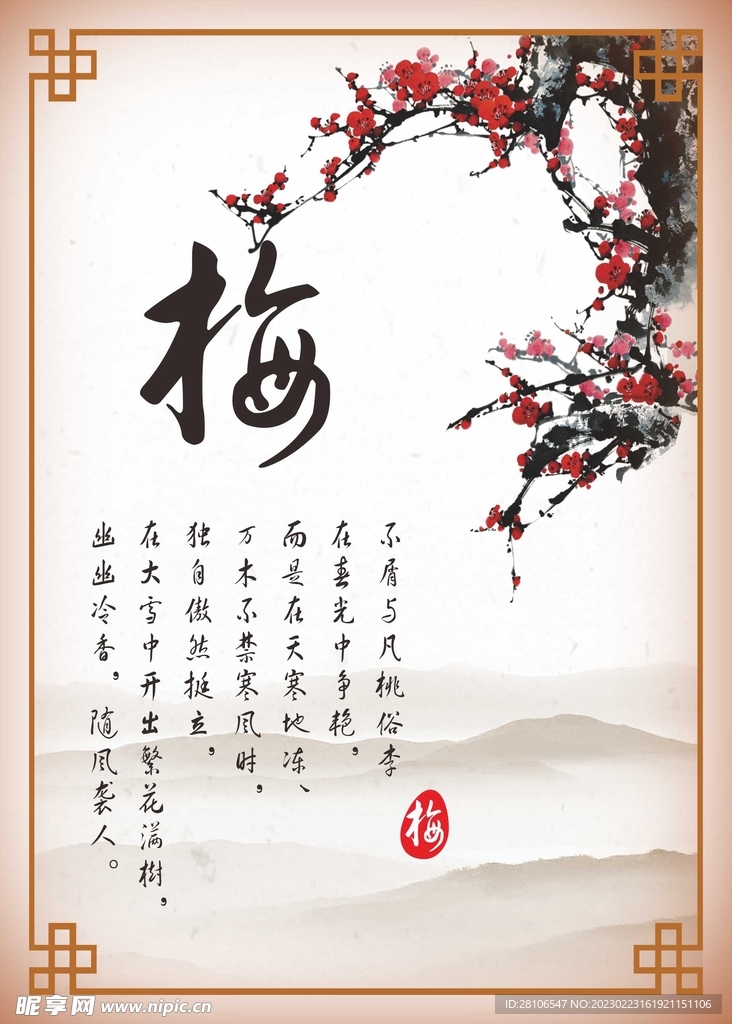 梅
不屑与凡桃俗李
在春光中争艳，
而是在天寒地冻、
万木不禁寒风时，
独自傲然挺立，
在大雪中开出繁花满樹，
幽幽冷香，随风袭人。
梅
昵享网 www.nipic.cn
ID:28106547 NO:20230223161921151106